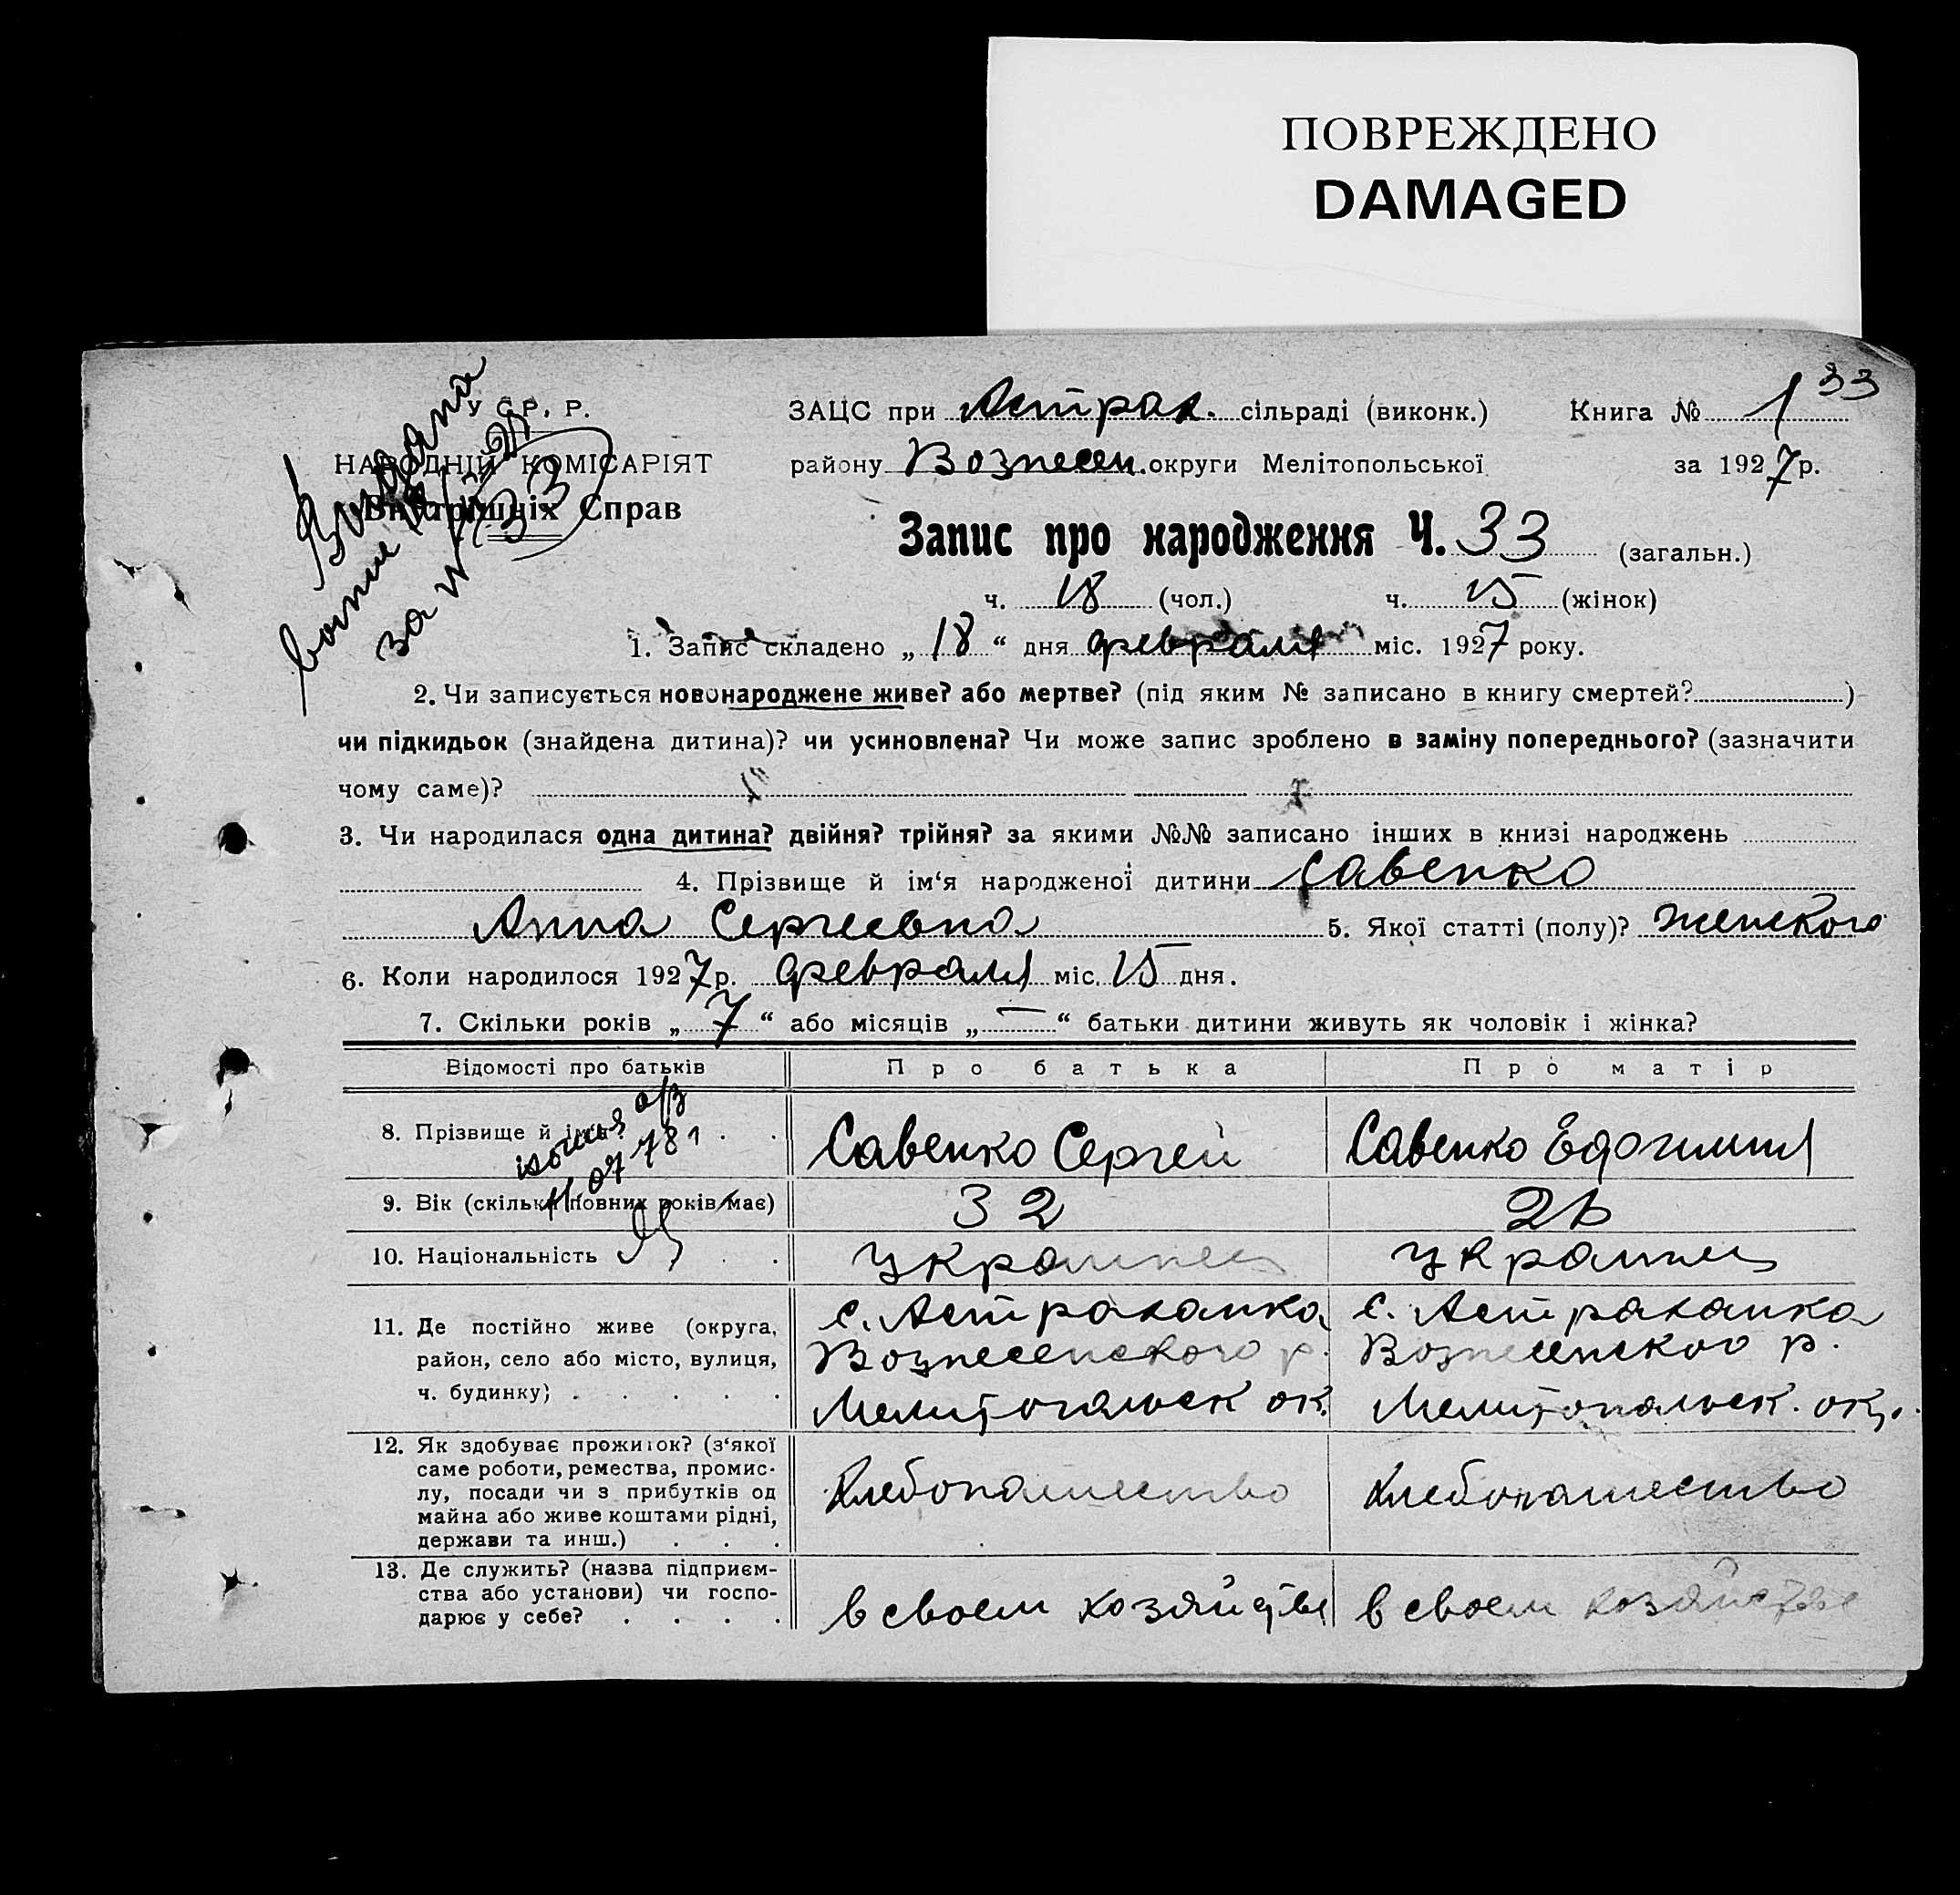 ПОВРЕЖДЕНО
DAMAGED
33
У С.Р.Р.
НАРОДНІЙ КОМІСАРІЯТ
Внутрішніх Справ
Видана
за № 33
ЗАЦС при Астрах. сільраді (виконк.) Книга № 1
району Вознесен. округи Мелітопольської за 1927 р.
Запис про народження Ч. 33 (загальн.)
ч. 18 (чол.) ч. 15 (жінок)
1. Запис складено „18“ дня февраля міс. 1927 року.
2. Чи записується новонароджене живе? або мертве? (під яким № записано в книгу смертей? )
чи підкидьок (знайдена дитина)? чи усиновлена? Чи може запис зроблено в заміну попереднього? (зазначити
чому саме)?
3. Чи народилася одна дитина? двійня? трійня? за якими №№ записано інших в книзі народжень
4. Прізвище й ім‘я народженої дитини Савенко
Анна Сергеевна 5. Якої статті (полу)? женского
6. Коли народилося 1927 р. февраля міс. 15 дня.
7. Скільки років „7“ або місяців „—“ батьки дитини живуть як чоловік і жінка?
Відомості про батьків Про батька Про матір
8. Прізвище й ім‘я? Савенко Сергей Савенко
07781
9. Вік (скільки повних років має) 32 26
10. Національність украинец украинец
11. Де постійно живе (округа, с. Астраханка с. Астраханка
район, село або місто, вулиця, Вознесенского р. Вознесенского р.
ч. будинку) Мелитопольск ок. Мелитопольск. окр.
12. Як здобуває прожиток? (з‘якої
саме роботи, ремества, промис-
лу, посади чи з прибутків од Хлебопашество Хлебопашество
майна або живе коштами рідні,
держави та инш.)
13. Де служить? (назва підприєм-
ства або установи) чи госпо- в своем хозяйстве в своем хозяйстве
дарює у себе?